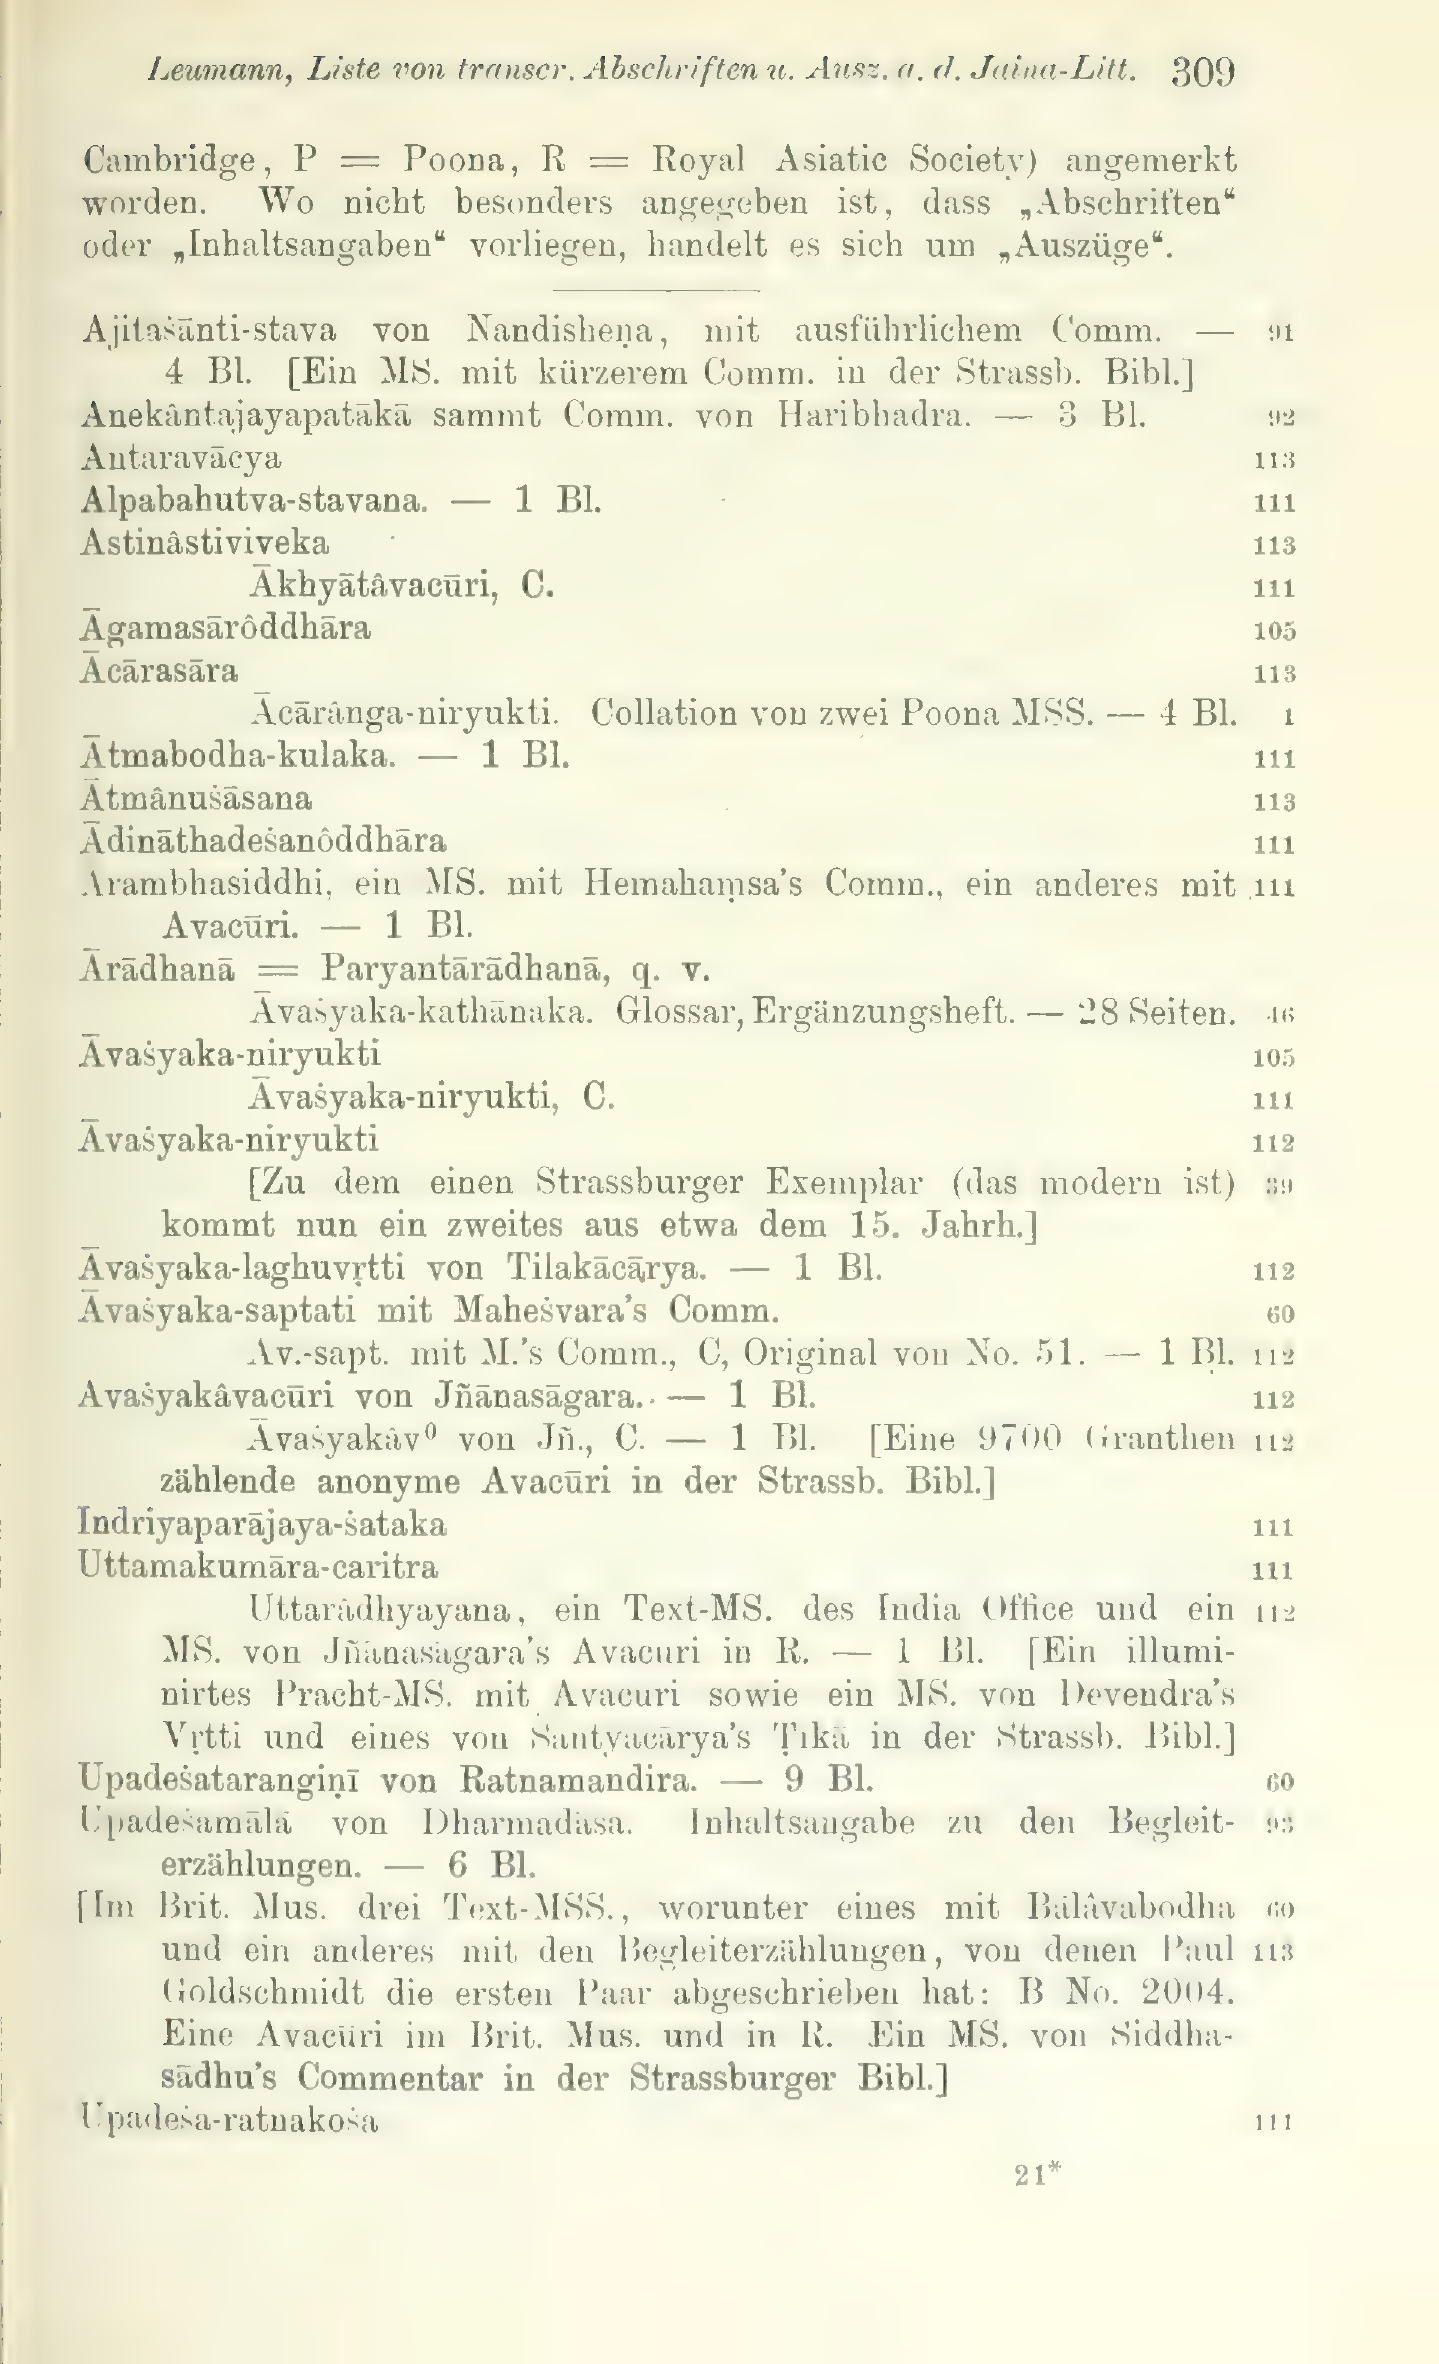 Leumann, Liste von transcr. Abschriften u. Ausz. a. d. Jaina-Litt. 309
Cambridge, P = Poona, R = Royal Asiatic Society) angemerkt
worden. Wo nicht besonders angegeben ist, dass „Abschriften“
oder „Inhaltsangaben“ vorliegen, handelt es sich um „Auszüge“.
Ajitaśānti-stava von Nandisheṇa, mit ausführlichem Comm. — 91
4 Bl. [Ein MS. mit kürzerem Comm. in der Strassb. Bibl.]
Anekântajayapatākā sammt Comm. von Haribhadra. — 3 Bl. 92
Antaravācya 113
Alpabahutva-stavana. — 1 Bl. 111
Astinâstiviveka 113
Ākhyātâvacūri, C. 111
Āgamasārôddhāra 105
Ācārasāra 113
Ācārânga-niryukti. Collation von zwei Poona MSS. — 4 Bl. 1
Ātmabodha-kulaka. — 1 Bl. 111
Ātmânuśāsana 113
Ādināthadeśanôddhāra 111
Ārambhasiddhi, ein MS. mit Hemahaṃsa's Comm., ein anderes mit 111
Avacūri. — 1 Bl.
Ārādhanā = Paryantārādhanā, q. v.
Āvaśyaka-kathānaka. Glossar, Ergänzungsheft. — 28 Seiten. 46
Āvaśyaka-niryukti 105
Āvaśyaka-niryukti, C. 111
Āvaśyaka-niryukti 112
[Zu dem einen Strassburger Exemplar (das modern ist) 39
kommt nun ein zweites aus etwa dem 15. Jahrh.]
Āvaśyaka-laghuvṛtti von Tilakācārya. — 1 Bl. 112
Āvaśyaka-saptati mit Maheśvara's Comm. 60
Āv.-sapt. mit M.'s Comm., C, Original von No. 51. — 1 Bl. 112
Avaśyakâvacūri von Jñānasāgara. — 1 Bl. 112
Āvaśyakâv⁰ von Jñ., C. — 1 Bl. [Eine 9700 Granthen 112
zählende anonyme Avacūri in der Strassb. Bibl.]
Indriyaparājaya-śataka 111
Uttamakumāra-caritra 111
Uttarâdhyayana, ein Text-MS. des India Office und ein 112
MS. von Jñānasāgara's Avacūri in R. — 1 Bl. [Ein illumi-
nirtes Pracht-MS. mit Avacūri sowie ein MS. von Devendra's
Vṛtti und eines von Śāntyācārya's Ṭīkā in der Strassb. Bibl.]
Upadeśataranginī von Ratnamandira. — 9 Bl. 60
Upadeśamālā von Dharmadāsa. Inhaltsangabe zu den Begleit- 93
erzählungen. — 6 Bl.
[Im Brit. Mus. drei Text-MSS., worunter eines mit Bālâvabodha 60
und ein anderes mit den Begleiterzählungen, von denen Paul 113
Goldschmidt die ersten Paar abgeschrieben hat: B No. 2004.
Eine Avacūri im Brit. Mus. und in R. Ein MS. von Siddha-
sādhu's Commentar in der Strassburger Bibl.]
Upadeśa-ratnakośa 111
21*